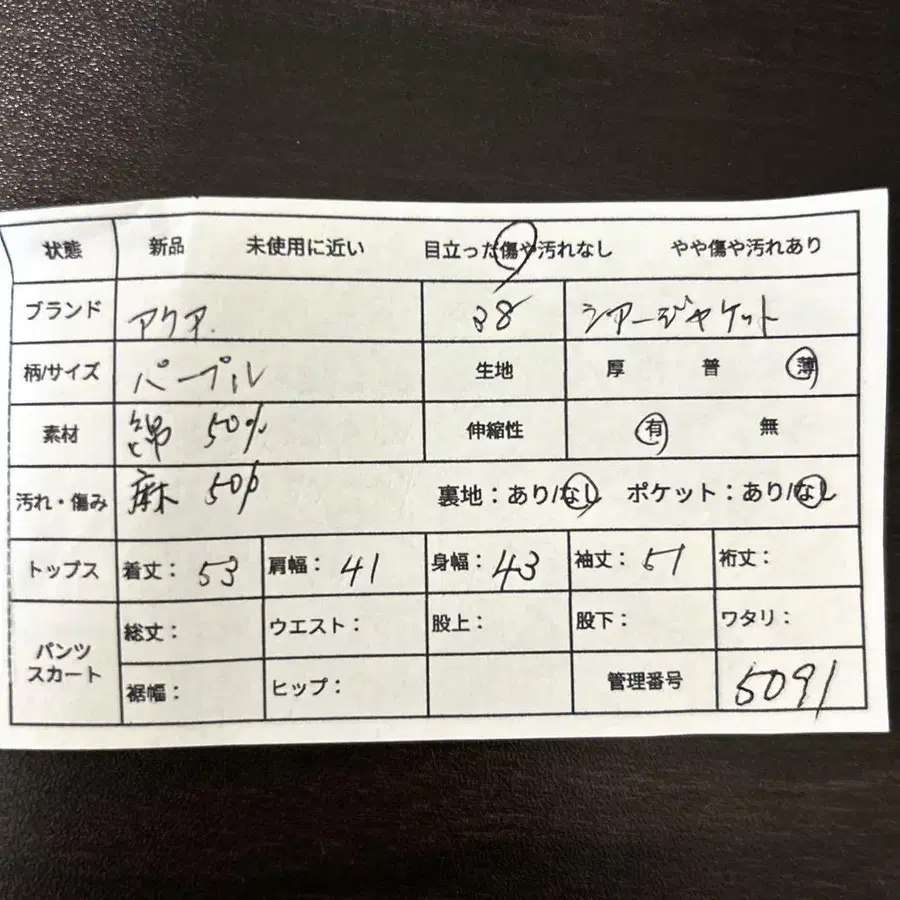 状態 新品 未使用に近い 目立った傷や汚れなし やや傷や汚れあり
ブランド アクア. 38 シアージャケット
柄/サイズ パープル 生地 厚 普 薄
素材 綿 50% 伸縮性 有 無
汚れ・傷み 麻 50% 裏地:あり/なし ポケット:あり/なし
トップス 着丈: 53 肩幅: 41 身幅: 43 袖丈: 51 裄丈:
パンツ スカート 総丈: ウエスト: 股上: 股下: ワタリ:
裾幅: ヒップ: 管理番号 5091